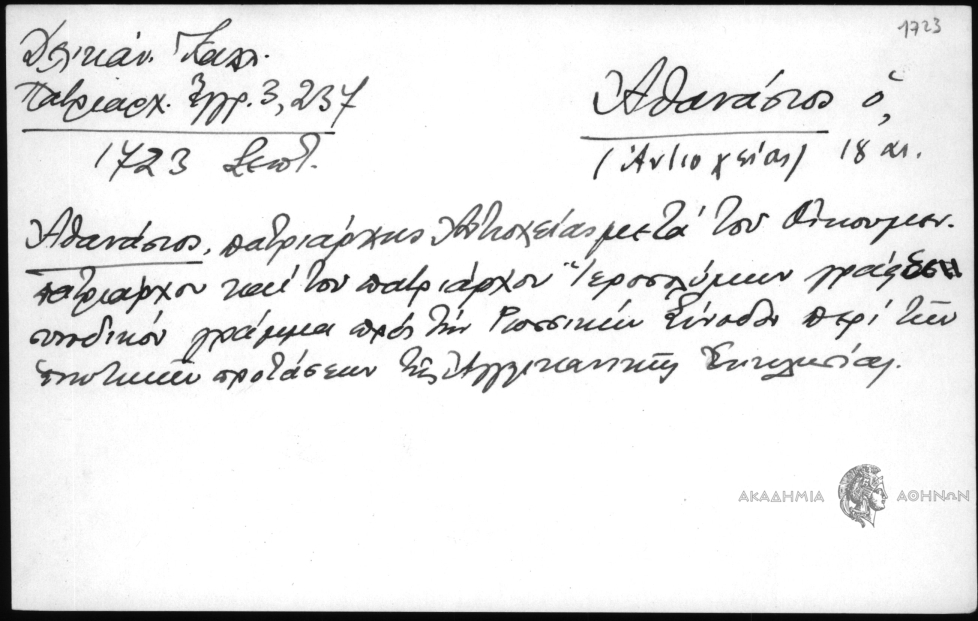 1723
Δελικάν. Καλ.
Πατριαρχ. Ἔγγρ. 3, 237
1723 Σεπτ.
Ἀθανάσιος ὁ,
(Ἀντιοχείας) 18 αι.
Ἀθανάσιος, πατριάρχης Ἀντιοχείας μετά του Οἰκουμεν.
πατριάρχου καί του πατριάρχου Ἱεροσολύμων γράφει
συνοδικόν γράμμα πρός τήν Ρωσσικήν Σύνοδον περί τῶν
ἑνωτικῶν προτάσεων τῆς Ἀγγλικανικῆς Ἐκκλησίας.
ΑΚΑΔΗΜΙΑ ΑΘΗΝΩΝ